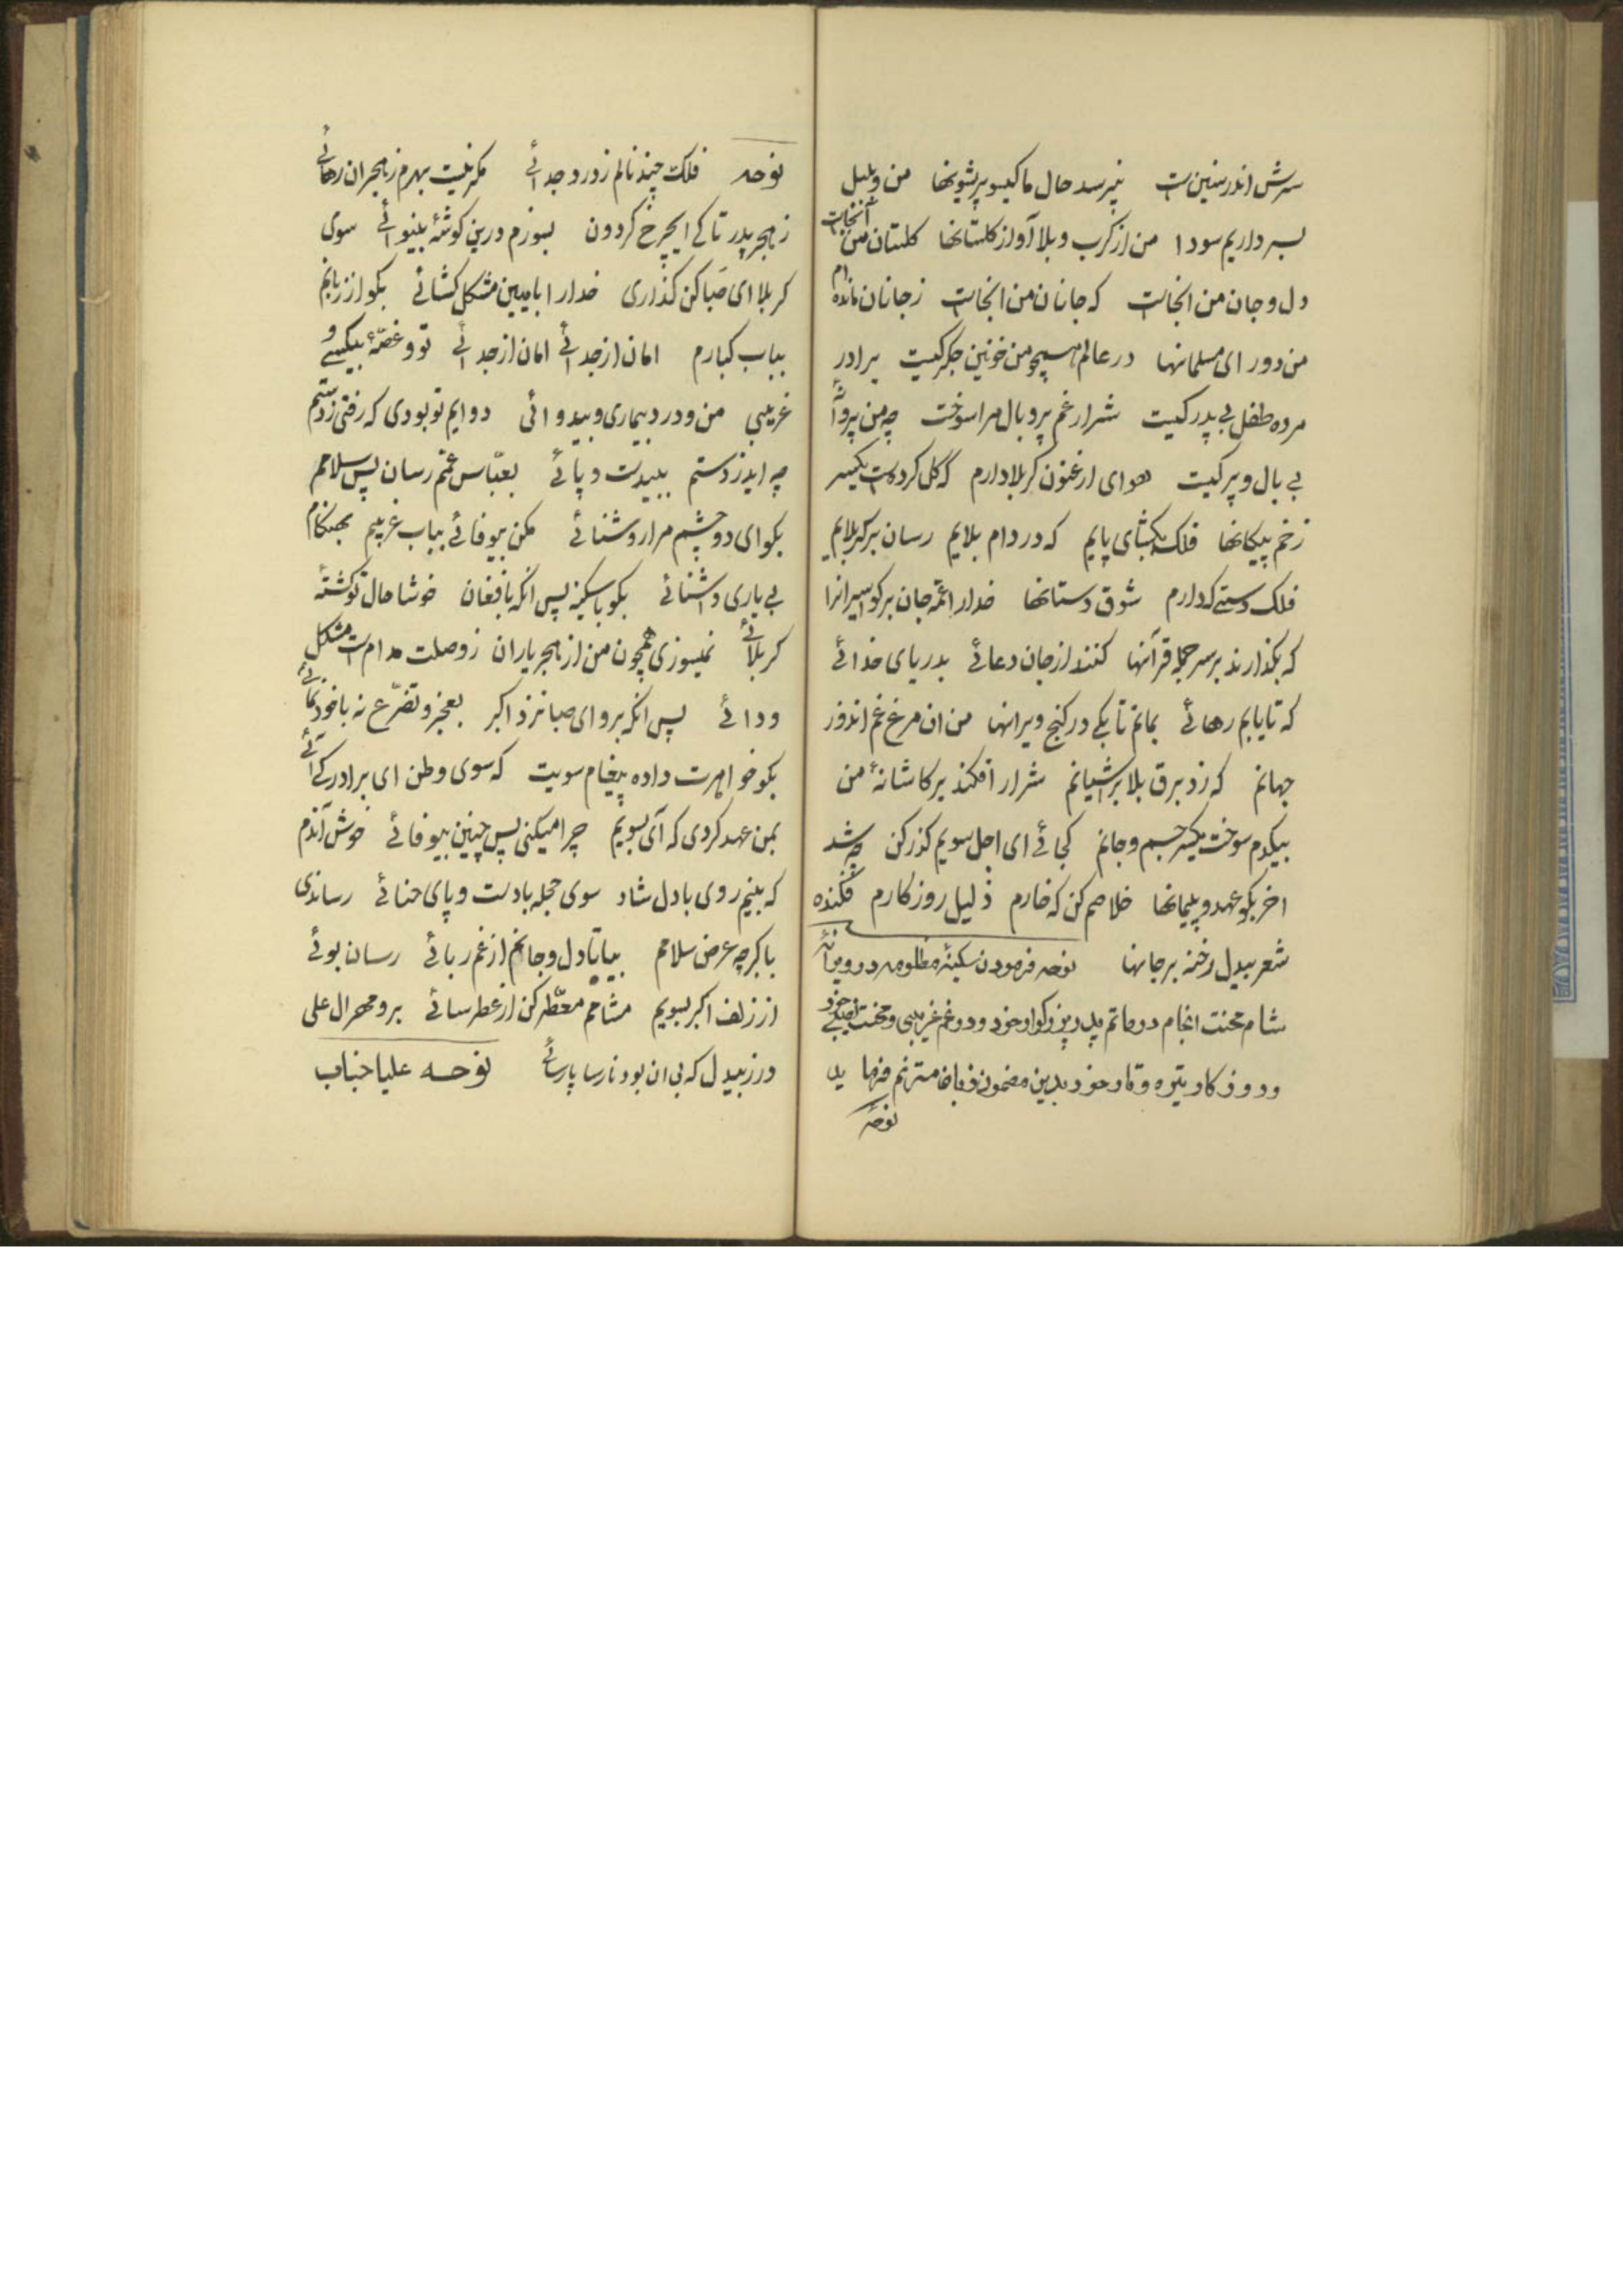 سرش اندر سنین است نپرسد حال ما کیسو پریشونها من و بلبل
بسر داریم سودا من از کرب و بلا آواز کلستانها کلستان من آنجاست
دل و جان من انجاست که جانان من انجاست ز جانان مانده ام
من دور ای مسلمانها در عالم همچو من خونین جکر کیست برادر
مرده طفل بی پدر کیست شرار غم پر و بال مرا سوخت چه من پروانه
بی بال و پر کیست هوای ارغنون کربلا دارم که کل کرده است یکسر
زخم پیکانها فلک بکشای پایم که در دام بلایم رسان بر کربلایم
فلک دستی که دارم شوق دستانها خدا را عمه جان بر کو اسیرانرا
که بکذارند بر سر جمله قرآنها کنند از جان دعائی بدریای خدائی
که تا یابم رهائی بمانم تا بکی در کنج ویرانها من ان مرغ غم اندوز
جهانم که زد برق بلا بر اشیانم شرار افکند بر کاشانهٔ من
بیکدم سوخت یکسر جسم و جانم کجائی ای اجل سویم کذر کن چه شد
اخر بکو عهد و پیمانها خلاصم کن که خارم ذلیل روزکارم فکنده
شعر بیدل رخنه بر جانها نوحه فرمودن سکینهٔ مظلومه در ویرانه
شام محنت انجام در ماتم پدر بزرکوار خود و در غم غریبی و محنت اسیری خود
و روزکار تیره و تار خود بدین مضمون زبانها مترنم فرماید
نوحه
نوحه فلک چند نالم ز درد جدائی مکر نیست بهرم ز هجران رهائی
ز هجر پدر تا کی ایچرخ کردون بسوزم درین کوشهٔ بینوائی سوی
کربلا ای صبا کن کذاری خدا را بما بین مشکل کشائی بکو از زبانم
بباب کبارم امان از جدائی امان از جدائی تو و غصهٔ بیکسی و
غریبی من و درد بیماری و بیدوائی دوایم تو بودی که رفتی ز دستم
چه اید ز دستم ببیدست و پائی بعباس عمم رسان پس سلامم
بکو ای دو چشم مرا روشنائی مکن بیوفائی بباب غریبم بهنکام
بی یاری و اشنائی بکو با سکینه پس انکه بافغان خوشا حال تو کشتهٔ
کربلائی نمیسوزی همچون من از هجر یاران ز وصلت مدام است مشکل
ودائی پس انکه برو ای صبا نزد اکبر بعجز و تضرع نه با خودنمائی
بکو خواهرت داده پیغام سویت که سوی وطن ای برادر کی آئی
بمن عهد کردی که آی بسویم چرا میکنی پس چنین بیوفائی خوش آندم
که بینم روی با دل شاد سوی حجله با دست و پای حنائی رساندی
باکبر چه عرض سلامم بیا تا دل و جانم از غم ربائی رسان بوئی
از زلف اکبر بسویم مشامم معطر کن از عطر سائی بر و مهر ال علی
ورز بیدل که بی ان بود نارسا پارسائی نوحه علیا جناب